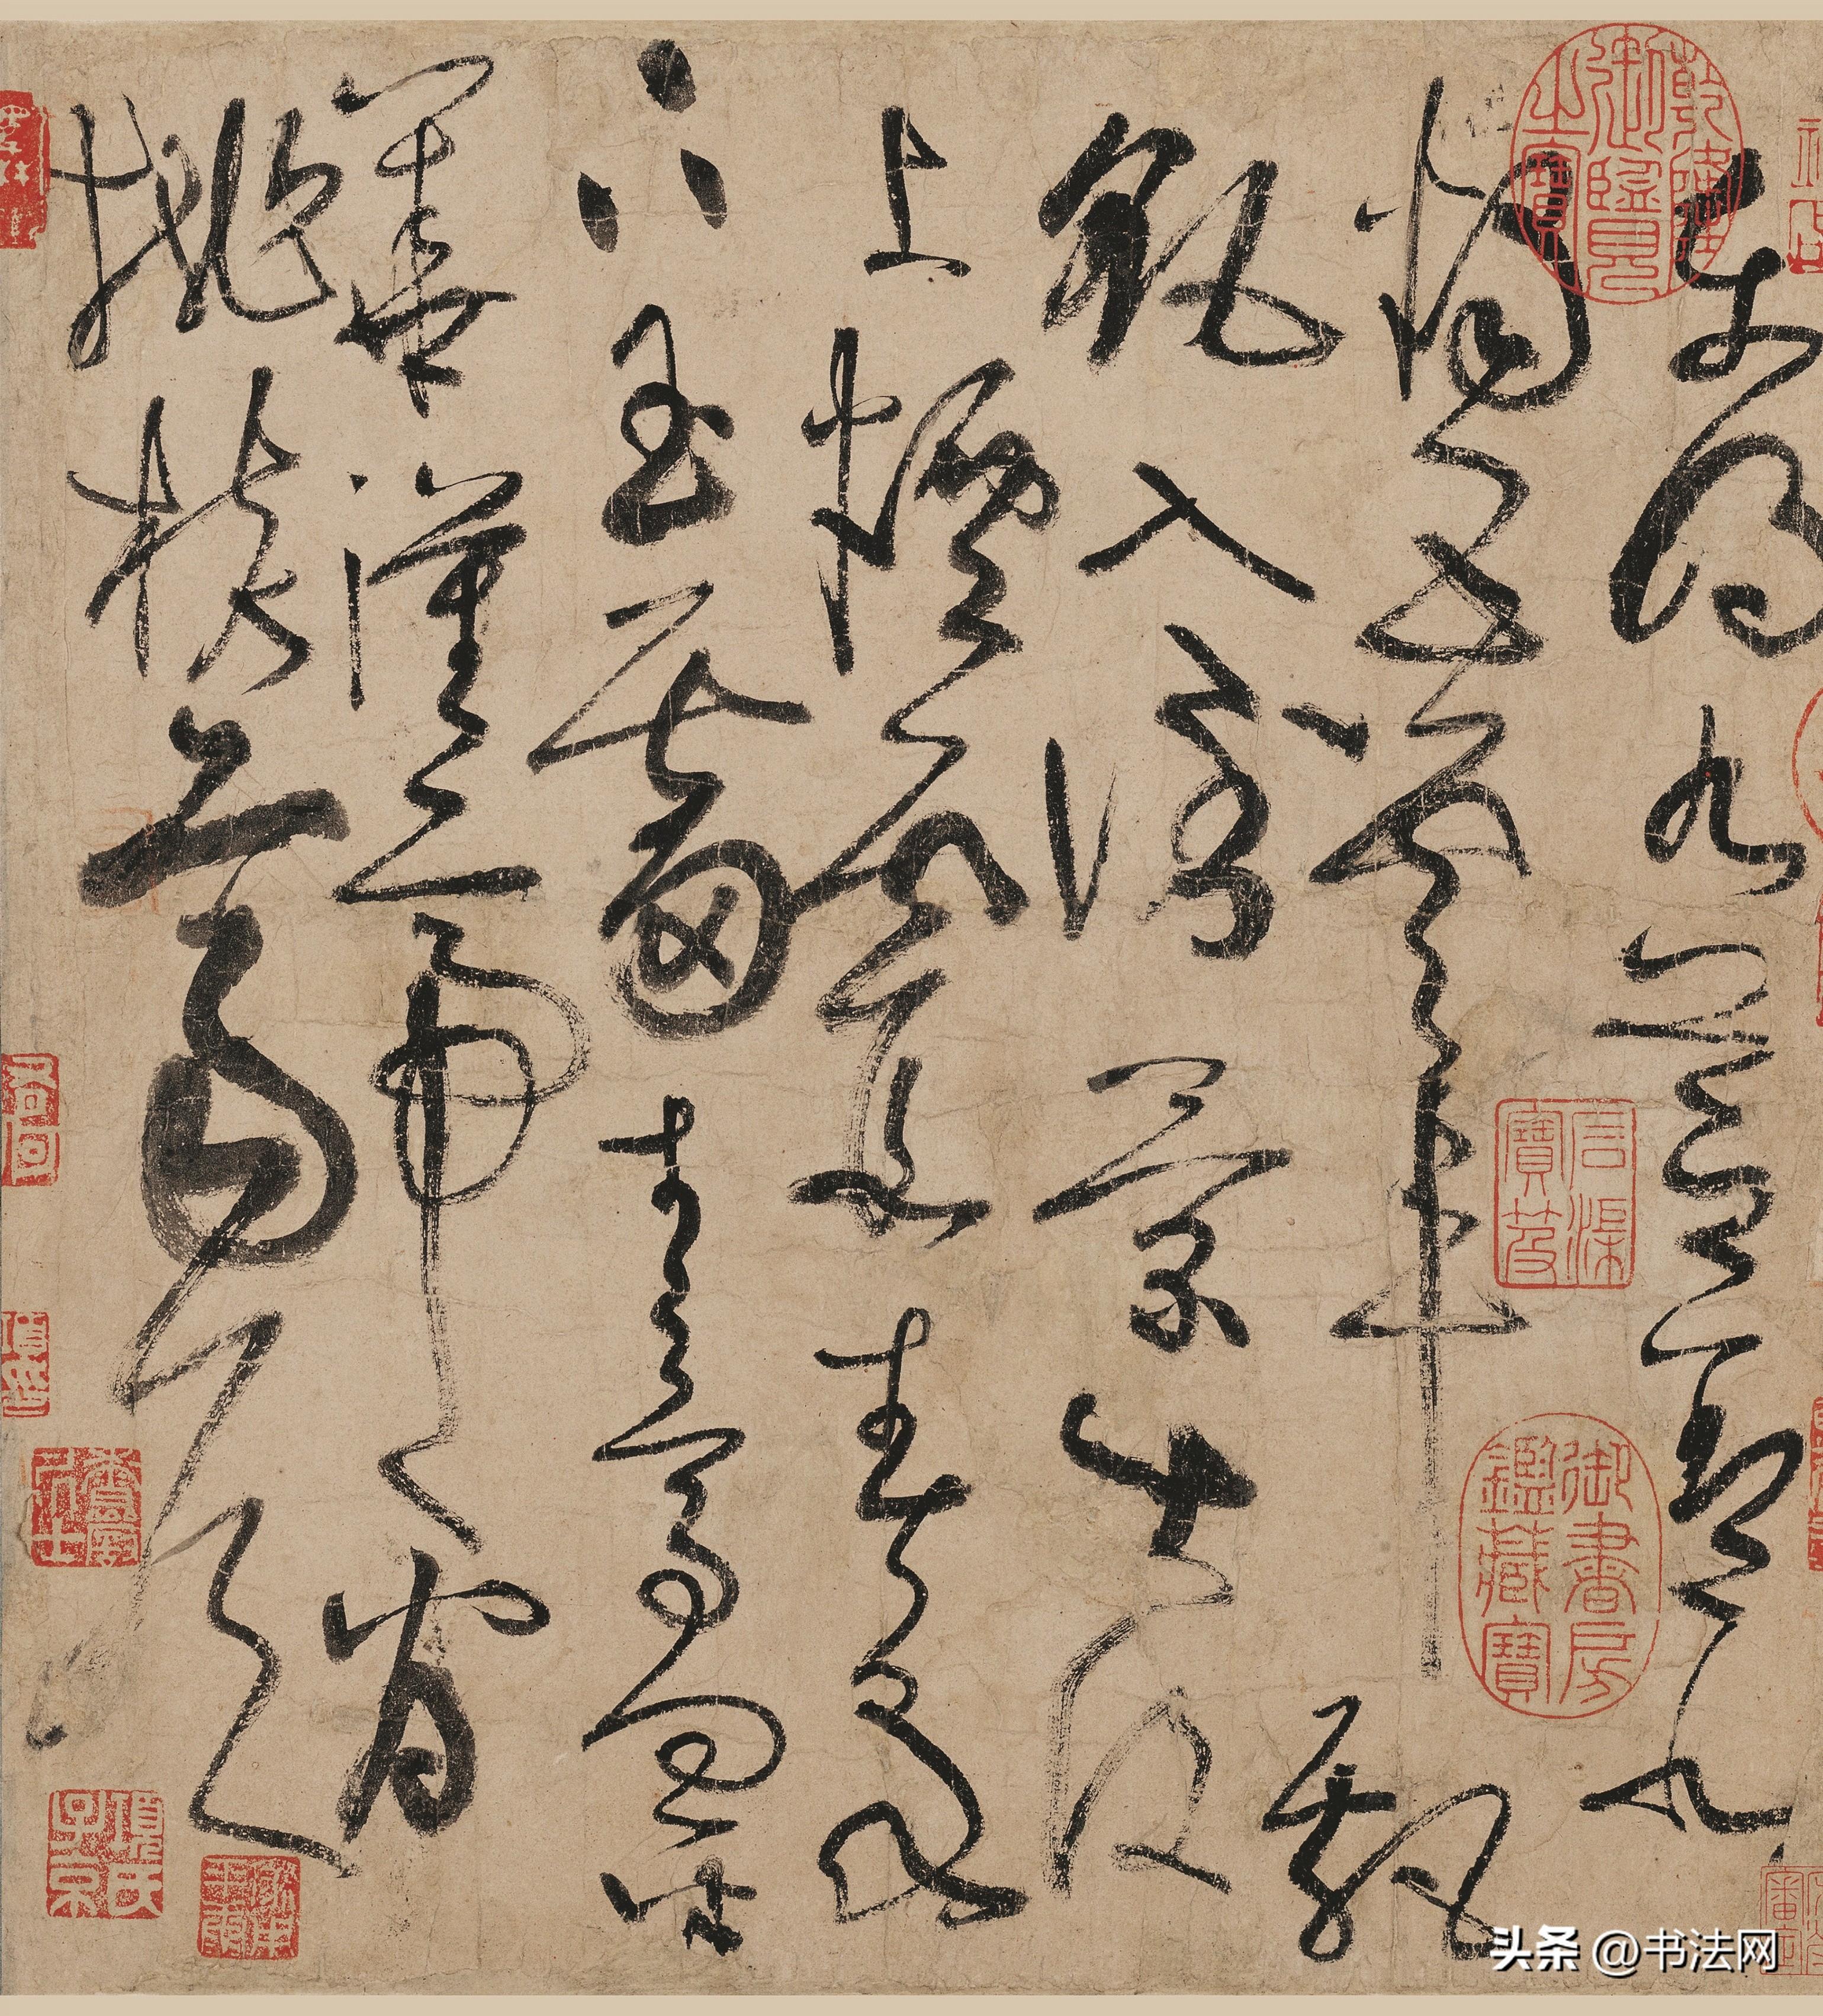 東明九芝蓋北
燭五雲車飄
颻入倒景出没
上煙霞春泉
下玉霤青鳥向金
華漢帝看
桃核齊侯
乾隆御覽之寶
石渠寶笈
御書房鑑藏寶
項氏子京
头条 @书法网